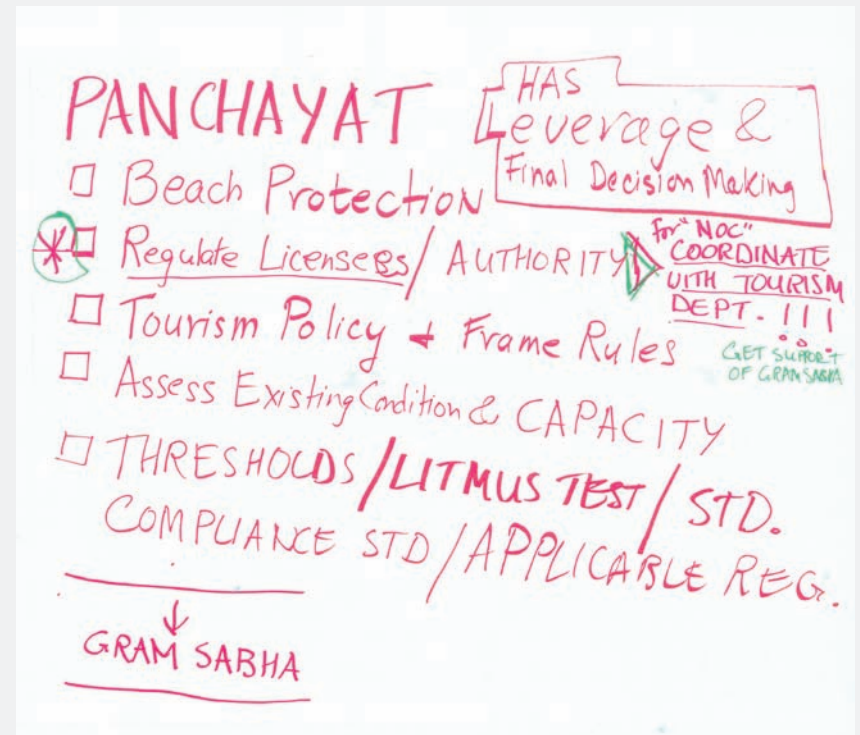 PANCHAYAT
HAS
Leverage &
Final Decision Making
Beach Protection
Regulate Licensees / AUTHORITY
For "NOC"
COORDINATE
WITH TOURISM
DEPT. !!!
GET SUPPORT
OF GRAM SABHA
Tourism Policy + Frame Rules
Assess Existing Condition & CAPACITY
THRESHOLDS / LITMUS TEST / STD.
COMPLIANCE STD / APPLICABLE REG.
↓
GRAM SABHA